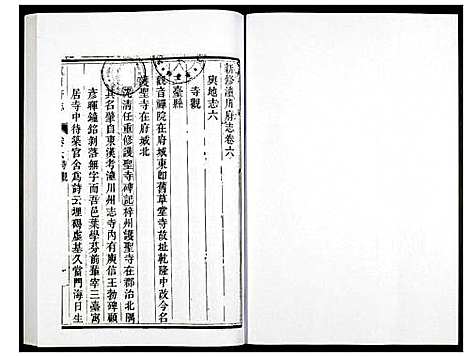 新修潼川府志卷六
輿地志六
寺觀
三臺縣
觀音禪院在府城東卽舊草堂寺故址乾隆中改今名
護聖寺在府城北
沈清任重修護聖寺碑記梓州護聖寺在郡治北隅
其名肇自東漢考潼川州志寺內有庾信王勃碑顧
彥暉鐘銘剝落無字而吾邑葉學芬前輩宰三臺寓
居寺中待築官舍爲詩云埋碣虛基久當門海日生